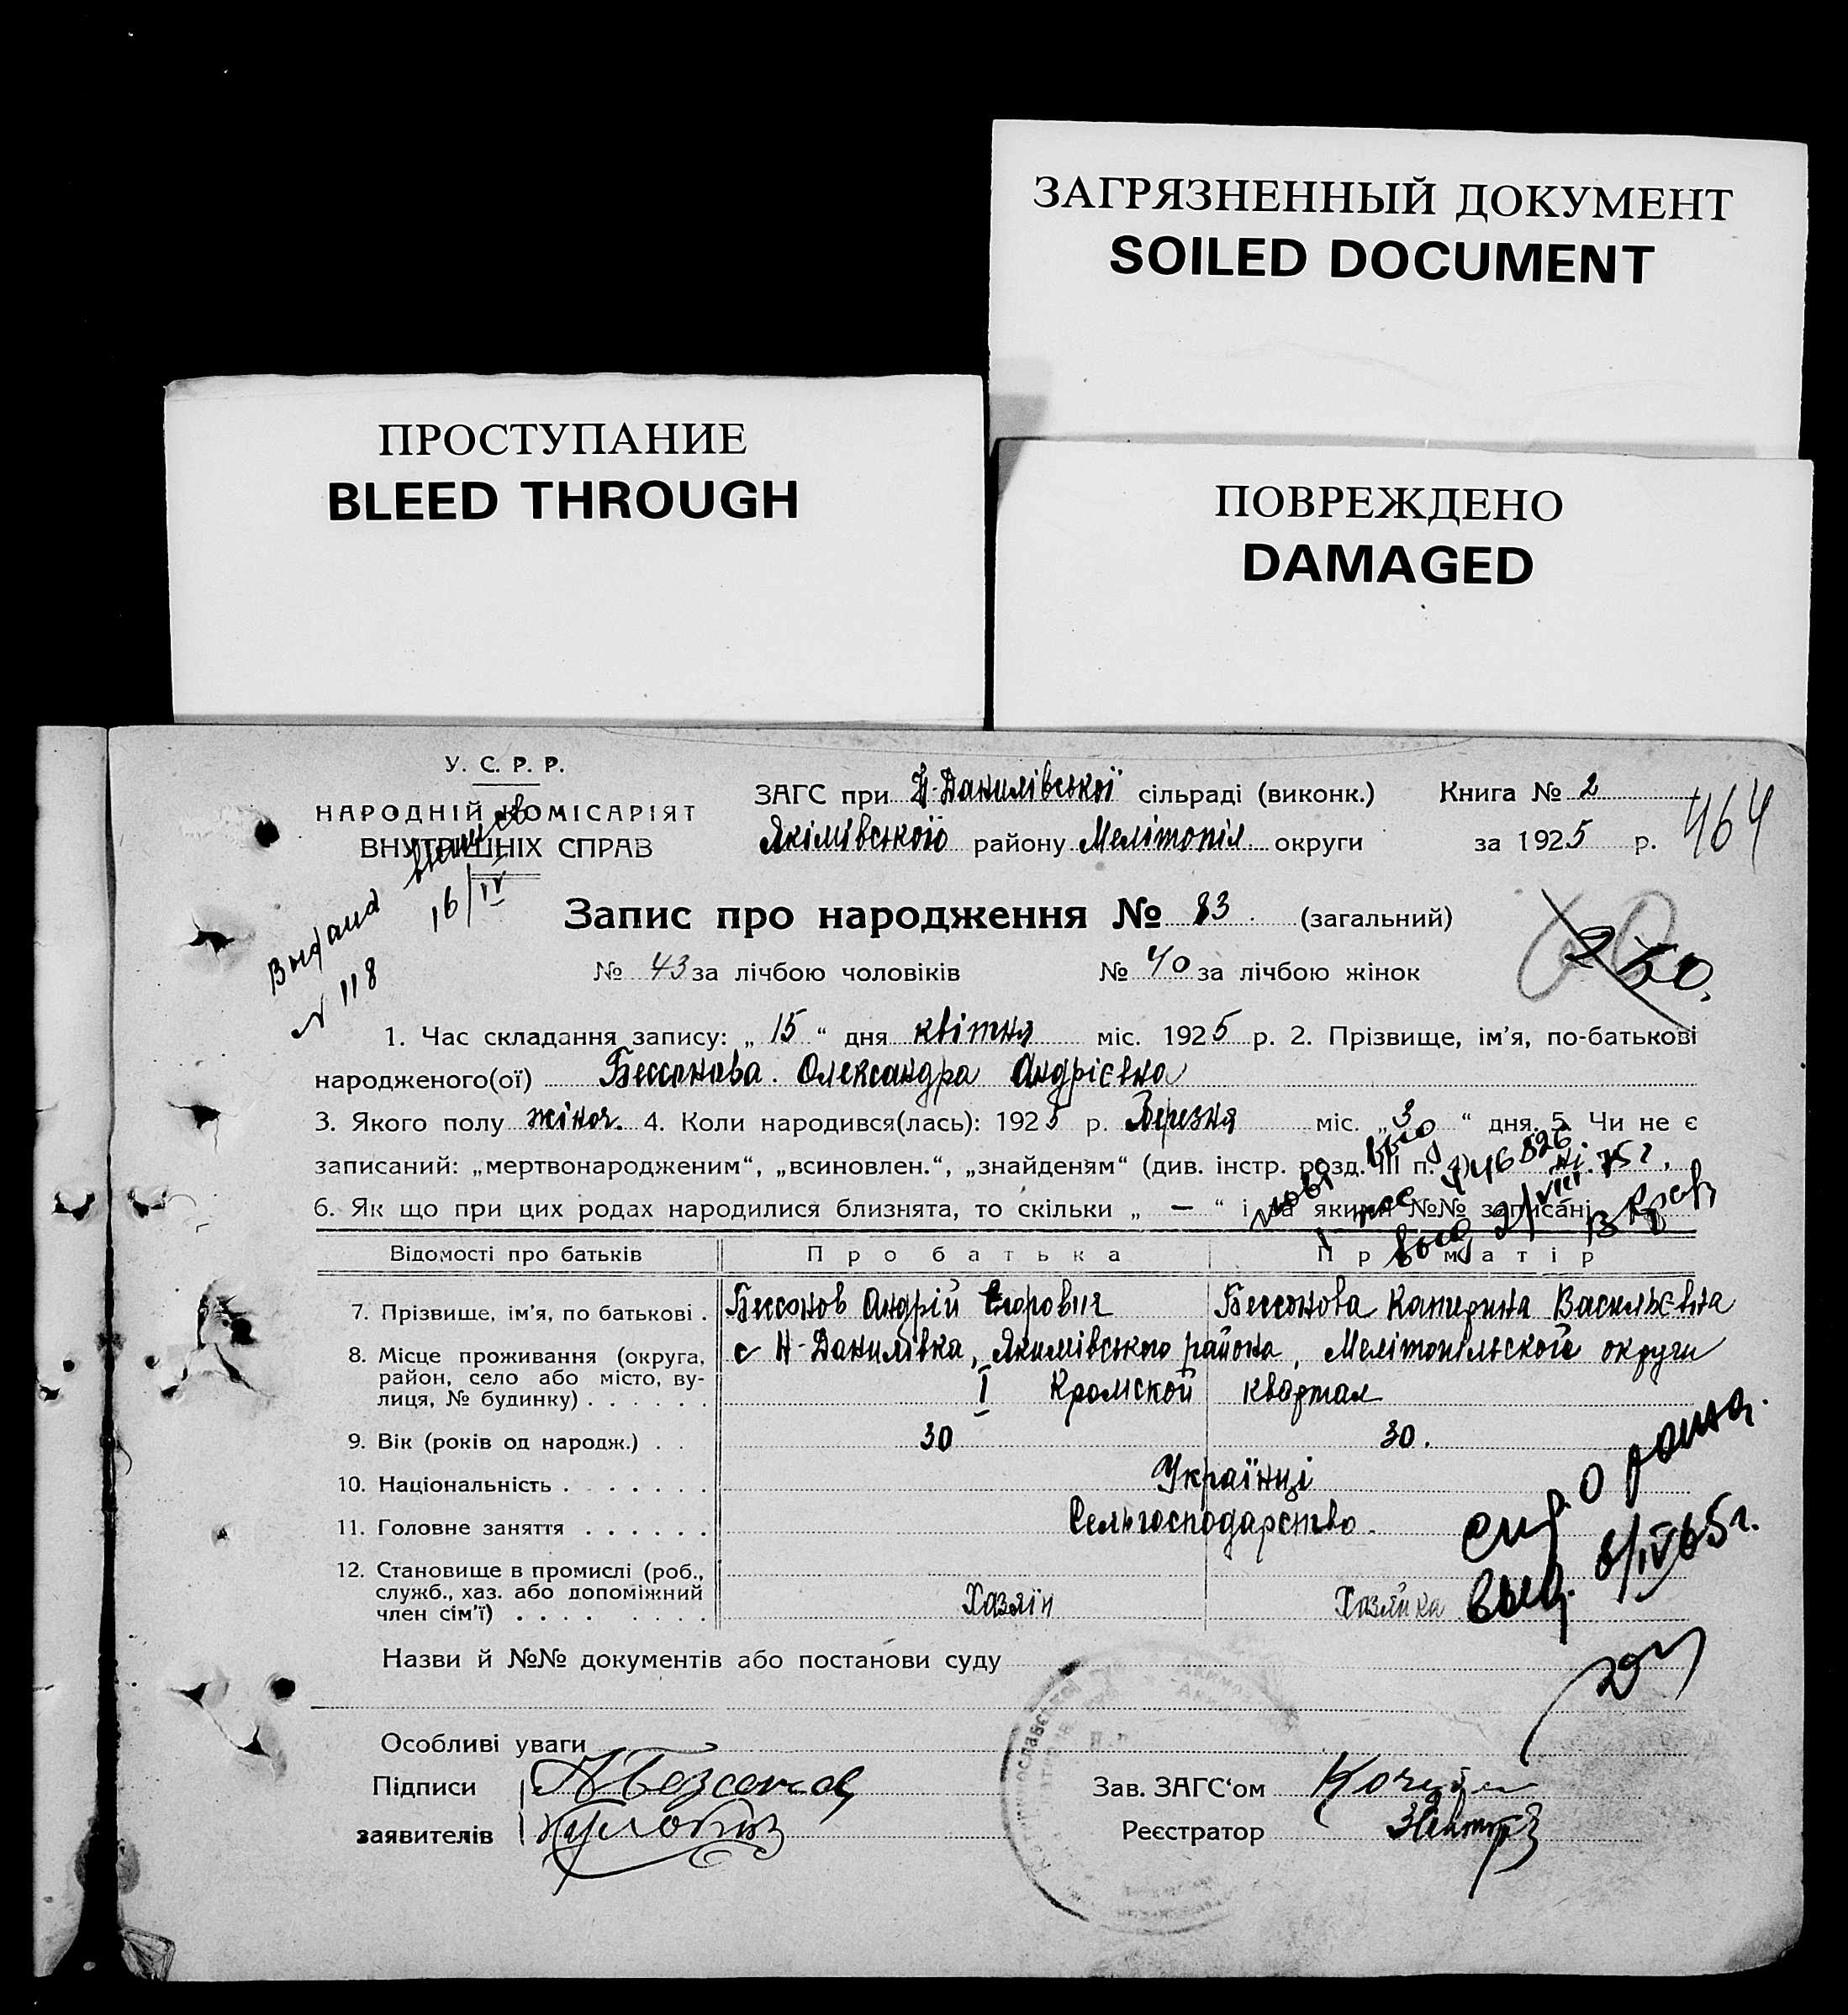 ЗАГРЯЗНЕННЫЙ ДОКУМЕНТ
SOILED DOCUMENT
ПРОСТУПАНИЕ
BLEED THROUGH
ПОВРЕЖДЕНО
DAMAGED
У. С. Р. Р.
НАРОДНІЙ КОМІСАРІЯТ
ВНУТРІШНІХ СПРАВ
ЗАГС при Н-Данилівської сільраді (виконк.)
Якімівського району Мелітопіл округи
Книга № 2
за 1925 р.
464
Выдана
16/IV
N 118
Запис про народження № 83. (загальний)
№ 43 за лічбою чоловіків № 40 за лічбою жінок
250.
1. Час складання запису: „15“ дня квітня міс. 1925 р. 2. Прізвище, ім'я, по-батькові
народженого(ої) Бессонова. Олександра Андрієвна
3. Якого полу жіноч. 4. Коли народився(лась): 1925 р. Березня міс. „3“ дня. 5. Чи не є
записаний: „мертвонародженим“, „всиновлен.“, „знайденям“ (див. інстр. розд. III п. 4)
6. Як що при цих родах народилися близнята, то скільки „—“ і за якими №№ записані
Відомості про батьків Про батька Про матір
7. Прізвище, ім'я, по батькові . Бессонов Андрій Єгорович Бессонова Катерина Васильєвна
8. Місце проживання (округа, район, село або місто, ву-
лиця, № будинку) . . . . . .
с Н-Данилівка, Якимівського района, Мелітопільскої округи
I Кромской квартал
9. Вік (років од народж.) . . 30 30.
10. Національність . . . . . . . Українці
11. Головне заняття . . . . . . Сельгосподарство.
12. Становище в промислі (роб.,
служб., хаз. або допоміжний
член сім'ї) . . . . . . . . Хазяїн Хазяйка
выд. 8/IV 65 г.
Назви й №№ документів або постанови суду
Особливі уваги
Підписи А Безсонов
заявителів
Зав. ЗАГС‘ом
Реєстратор